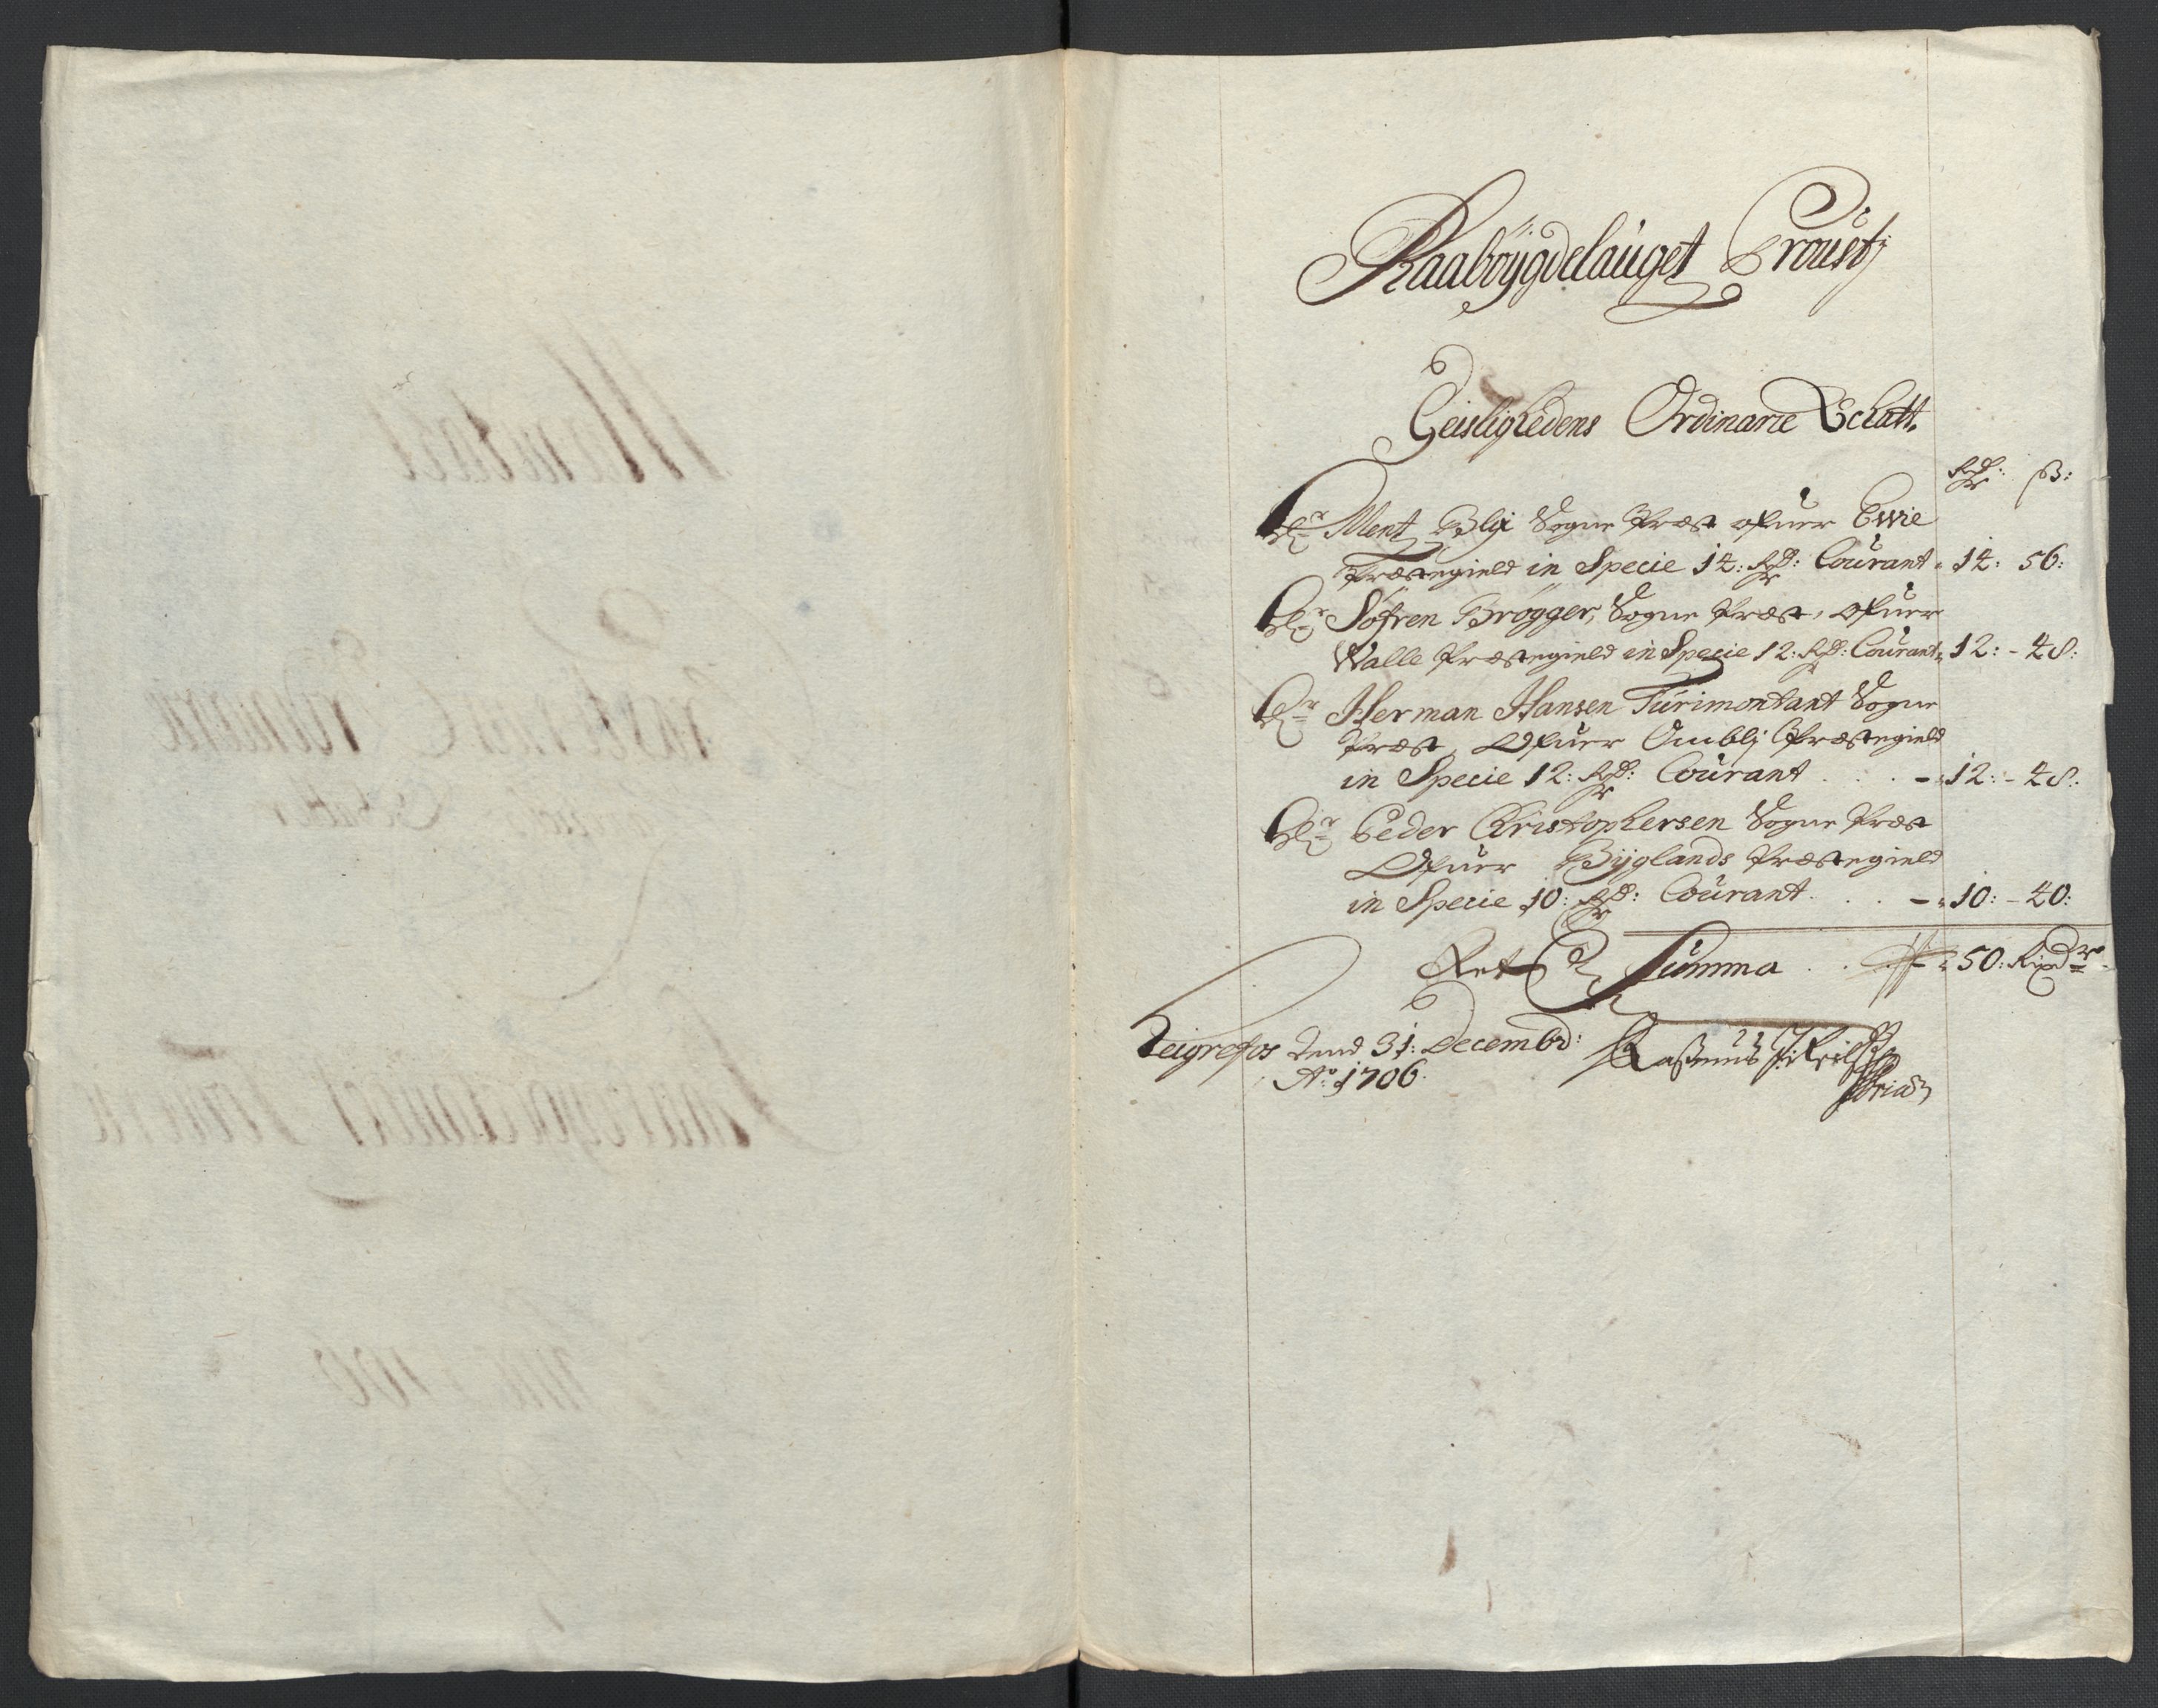 Raabøygdelauget Proustj
Geislighedens Ordinarie Schatt.
Rdr: ß:
Hr Ment Sogne Præst ofuer Ewie
Præstegield in Specie 14: Rdr: Courant 14: 56:
Hr Søfren Brøgger, Sogne Præst, ofuer
Walle Præstegield in Specie 12: Rdr: Courant 12: - 48:
Hr Herman Hansen Turimontant Sogne
Præst, Ofuer Omblj Præstegield
in Specie 12: Rdr: Courant . . . - 12: - 48:
Hr Peder Christophersen Sogne Præst
Ofuer Byglands Præstegield
in Specie 10: Rdr: Courant . . . - 10: - 40:
Summa . . 50: Rixdr
Teigrefos dend 31: Decembr:
Ao: 1706.